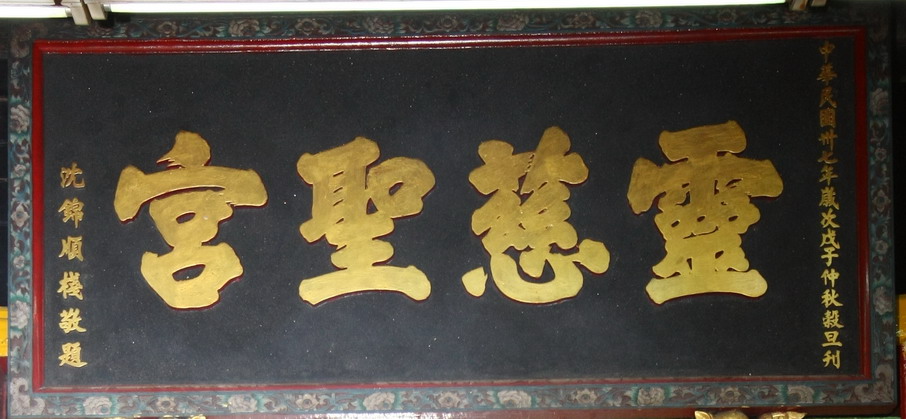 中華民國卅七年歲次戊子仲秋穀旦刊
靈慈聖宮
沈錦順棧敬題